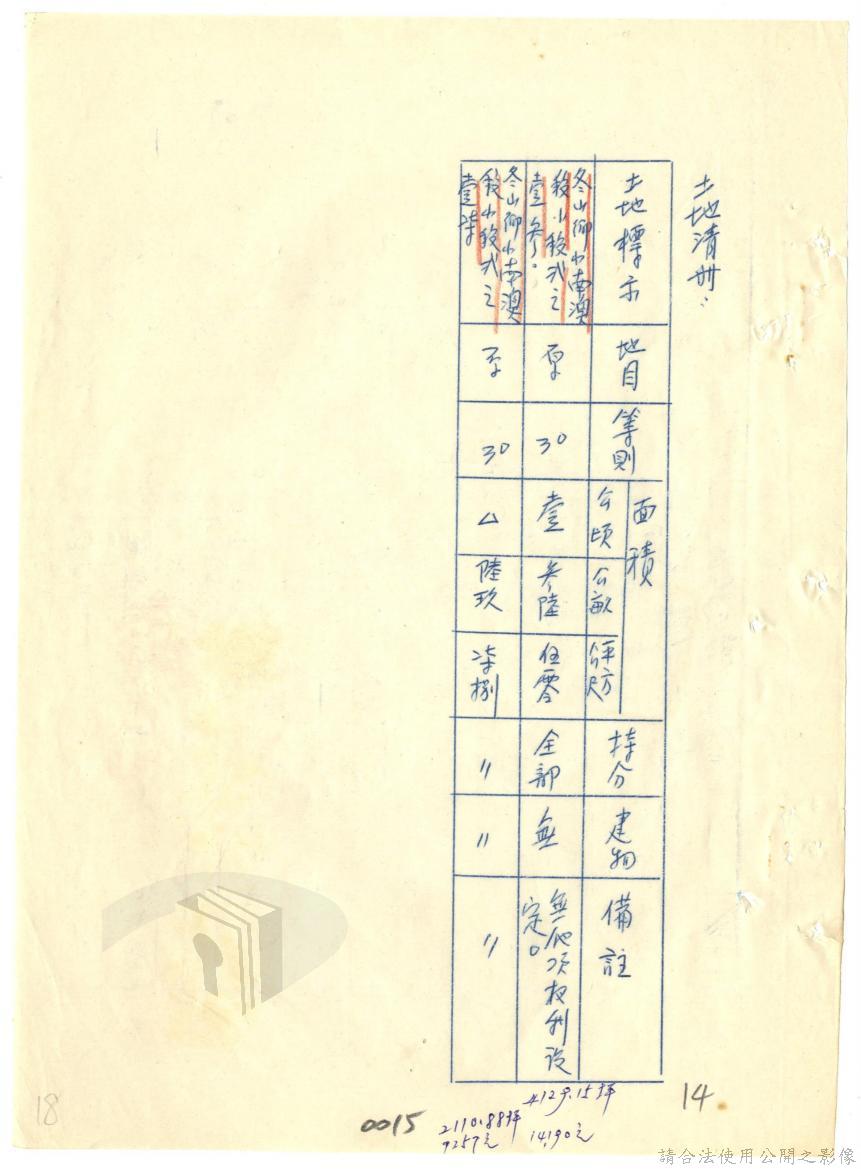 土地清冊：
土地標示
地目
等則
面積
公頃
公畝
平方公尺
持分
建物
備註
冬山鄉小南澳
段小段弍之
壹叁。
原
30
壹
叁陸
伍零
全部
無
無他項权利設
定。
冬山鄉小南澳
段小段弍之
壹柒
30
△
陸玖
柒捌
〃
〃
〃
4129.15坪
14190元
2110.88坪
7257元
0015
14
18
請合法使用公開之影像